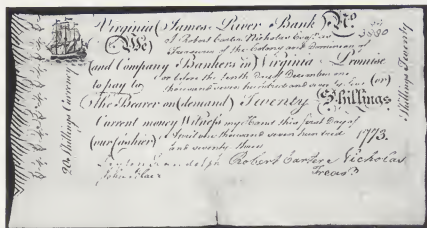 Virginia (James River Bank) No.
3880
(We) I Robert Carter Nicholas Esqr. as
Treasurer of the Colony and Dominion of
(and Company Bankers in) Virginia Promise
to pay to on or before the tenth Day of December one
thousand seven hundred and seventy (or)
the Bearer on (demand) Twenty Shillings
Current money Witness my Hand this first Day of
(our cashier) April one thousand seven hundred 1773.
and seventy three
Peyton Randolph Robert Carter Nicholas
John Blair Treasr.
20 Shillings Currency
Shillings Twenty